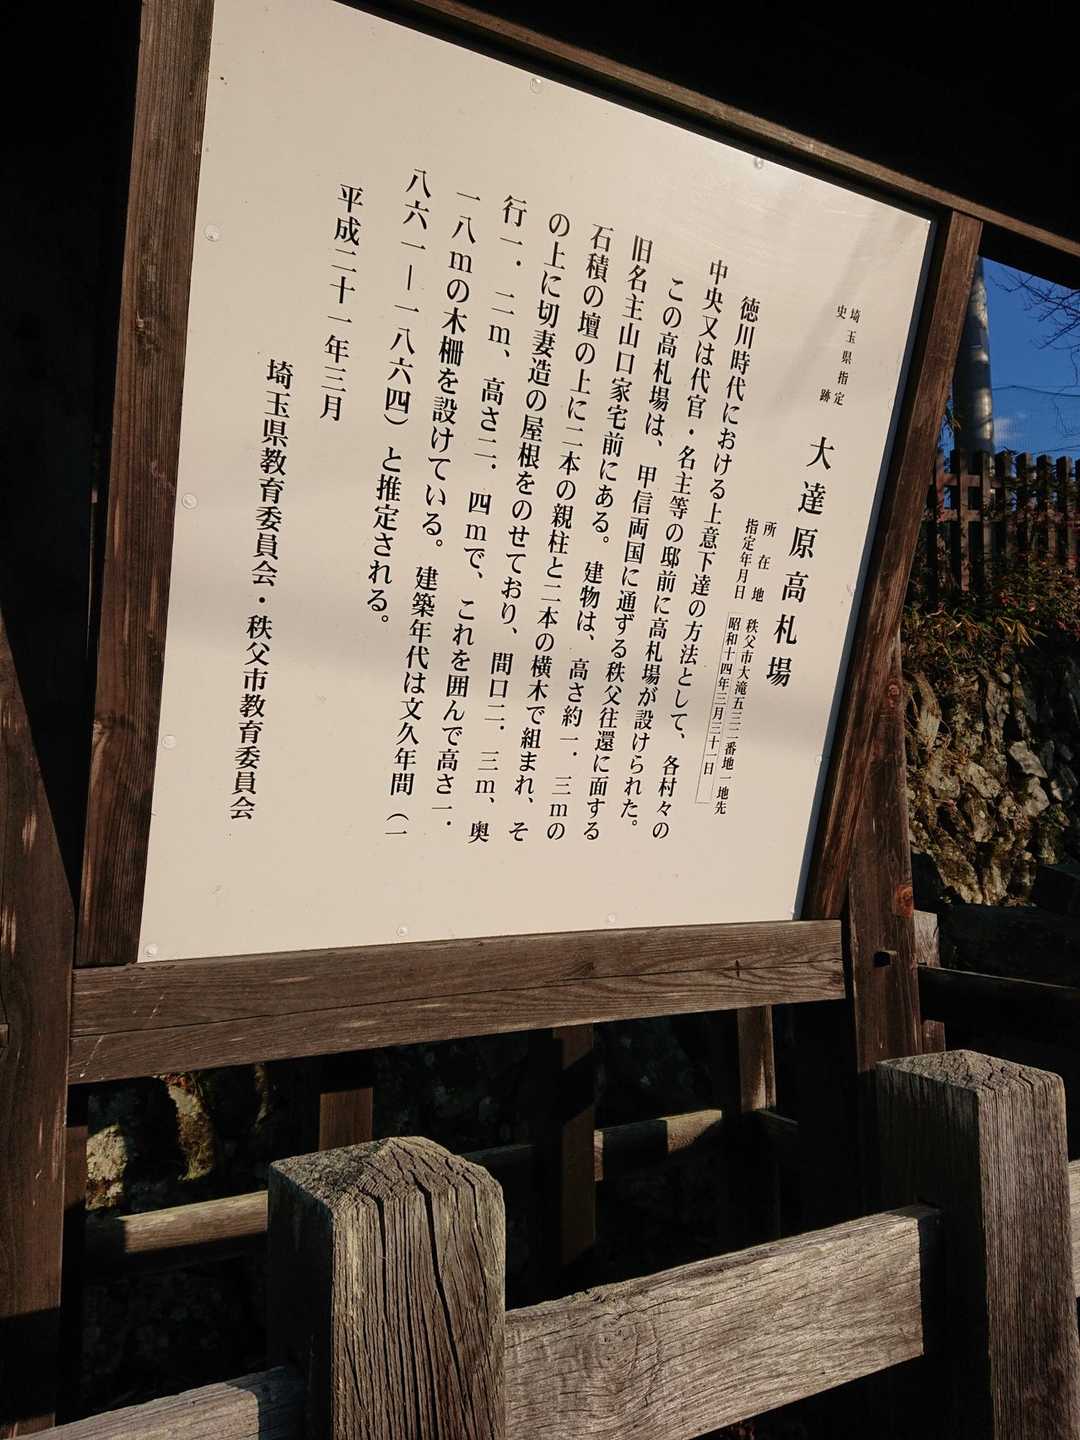 埼玉県指定
史跡
大達原高札場
所在地 秩父市大滝五三二番地一地先
指定年月日 昭和十四年三月三十一日
徳川時代における上意下達の方法として、各村々の
中央又は代官・名主等の邸前に高札場が設けられた。
この高札場は、甲信両国に通ずる秩父往還に面する
旧名主山口家宅前にある。建物は、高さ約一．三mの
石積の壇の上に二本の親柱と二本の横木で組まれ、そ
の上に切妻造の屋根をのせており、間口二．三m、奥
行一．二m、高さ二．四mで、これを囲んで高さ一．
一八mの木柵を設けている。建築年代は文久年間（一
八六一―一八六四）と推定される。
平成二十一年三月
埼玉県教育委員会・秩父市教育委員会